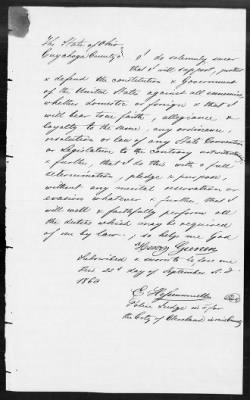 The State of Ohio
Cuyahoga County s I do solemnly swear
that I will support, protect
& defend the constitution & Government
of the United States against all enemies
whether domestic or foreign & that I
will bear true faith, allegiance &
loyalty to the same, any ordinance,
resolution or law of any State Convention
or Legislature to the contrary notwithstanding
& further, that I do this with a full
determination, pledge & purpose,
without any mental reservation or
evasion whatever & further, that I
will well & faithfully perform all
the duties which may be required
of me by law. So help me God
Henry
Subscribed & sworn to before me
this 22d day of September A.D.
186
E. Hessenmueller
Police Judge in & for
the City of Cleveland